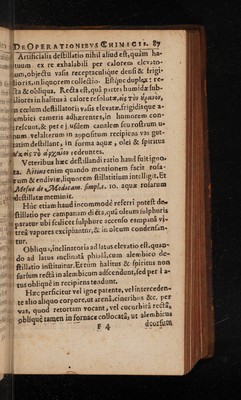 DE OPERATIONIBVS CHIMICIS. 87
Artificialis destillatio nihil aliud est, quàm ha-
lituum ex re exhalabili per calorem eleuato-
rum, obiectu vasis receptaculique densi & frigi-
dioris, in liquorem collectio. Estque duplex: re-
cta & obliqua. Recta est, quâ partes humidæ sub-
tiliores in halitus à calore resolutæ,
in cœlum destillatorij vasis eleuatæ, frigidisque a-
lembici cameris adhærentes, in humorem con-
crescunt, & per eiusdem canalem seu rostrum v-
num vel alterum in appositum recipiens vas gut-
tatim destillant, in forma aquæ, olei & spiritus
redeuntes.
Veteribus hæc destillandi ratio haud fuit igno-
ta. enim quando mentionem facit rosa-
rum & endiuiæ, liquorem stillatitium intelligit. Et
Mesue de Medicam. simpl. c. 10. aquæ rosarum
destillatæ meminit.
Huc etiam haud incommodè referri potest de-
stillatio per campanam dicta, quâ oleum sulphuris
paratur ubi scilicet sulphure accenso campanâ vi-
treâ vapores excipiuntur, & in oleum condensan-
tur.
Obliqua, inclinatoria ad latus eleuatio est, quan-
do ad latus inclinatâ phialâ, cum alembico de-
stillatio instituitur. Etenim halitus & spiritus non
sursum rectâ in alembicum adscendunt, sed per la-
tus obliquè in recipiens tendunt.
Hæc perficitur vel igne patente, vel interceden-
te alio aliquo corpore, ut arenâ, cineribus &c. per
vas, quod retortam vocant, vel cucurbitâ rectâ,
obliquè tamen in fornace collocatâ, ut alembicus
F 4 deorsum